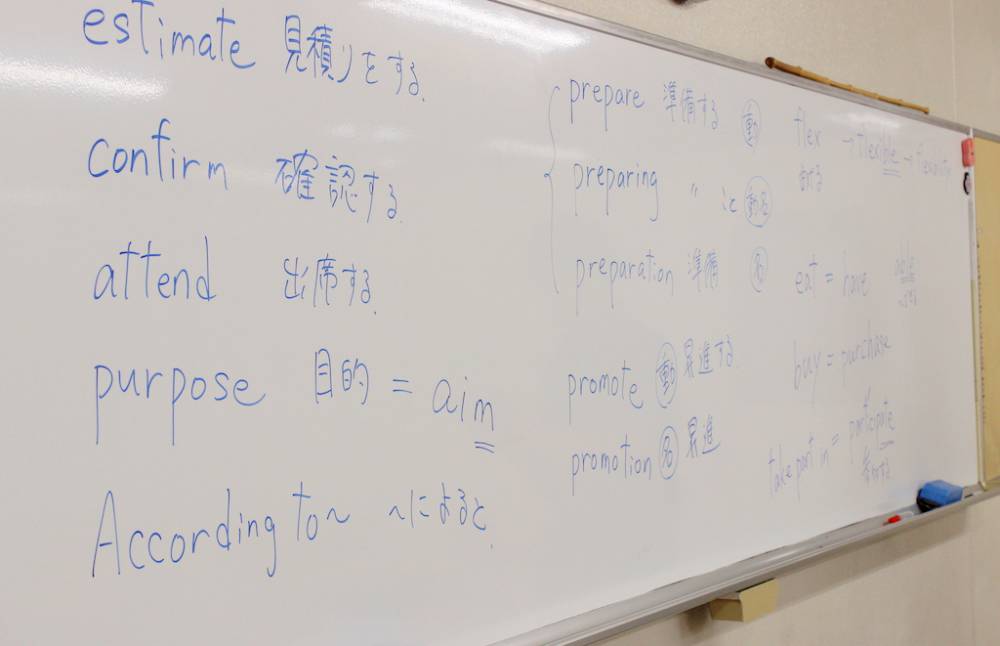 estimate 見積りをする.
confirm 確認する.
attend 出席する.
purpose 目的 = aim
According to~ ~によると.
prepare 準備する 動
preparing 〃 こと 動名
preparation 準備 名
promote 動 昇進する
promotion 名 昇進
flex → flexible → flexibility
曲げる
eat = have
buy = purchase
take part in = participate
参加する